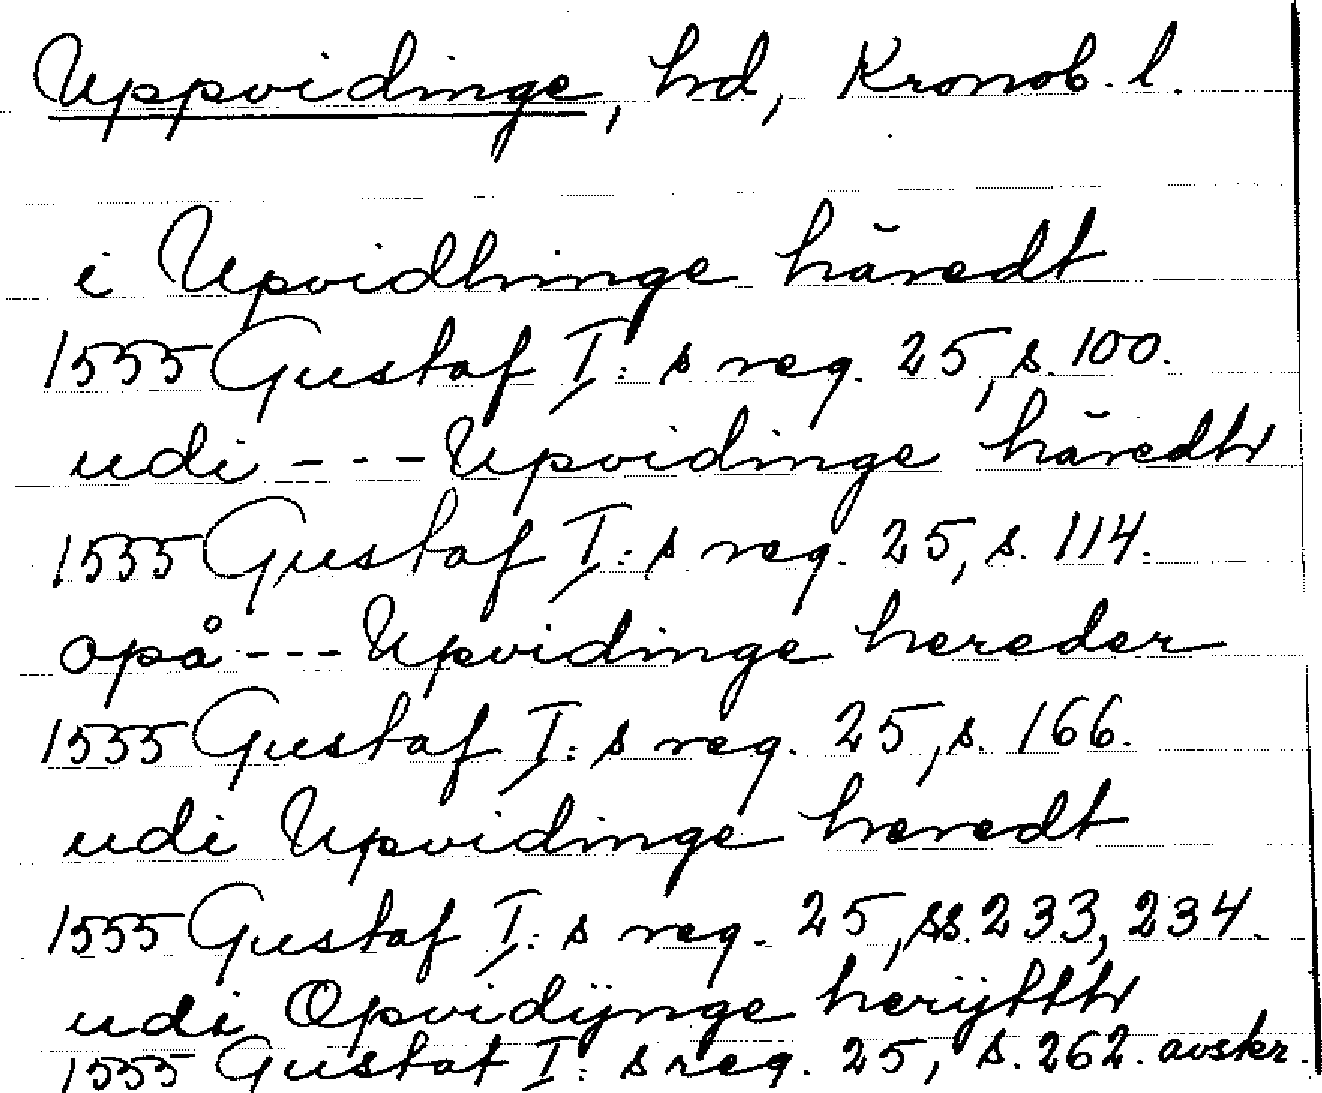 Uppvidinge, hd, Kronob. l.
i Upvidhinge häredt
1555 Gustaf I:s reg. 25, s. 100.
udi --- Upvidinge häredh
1555 Gustaf I:s reg. 25, s. 114.
opå --- Upvidinge hereder
1555 Gustaf I:s reg. 25, s. 166.
udi Upvidinge heredt
1555 Gustaf I:s reg. 25, ss. 233, 234.
udi Opvidÿnge herÿtth
1555 Gustaf I:s reg. 25, s. 262. avskr.